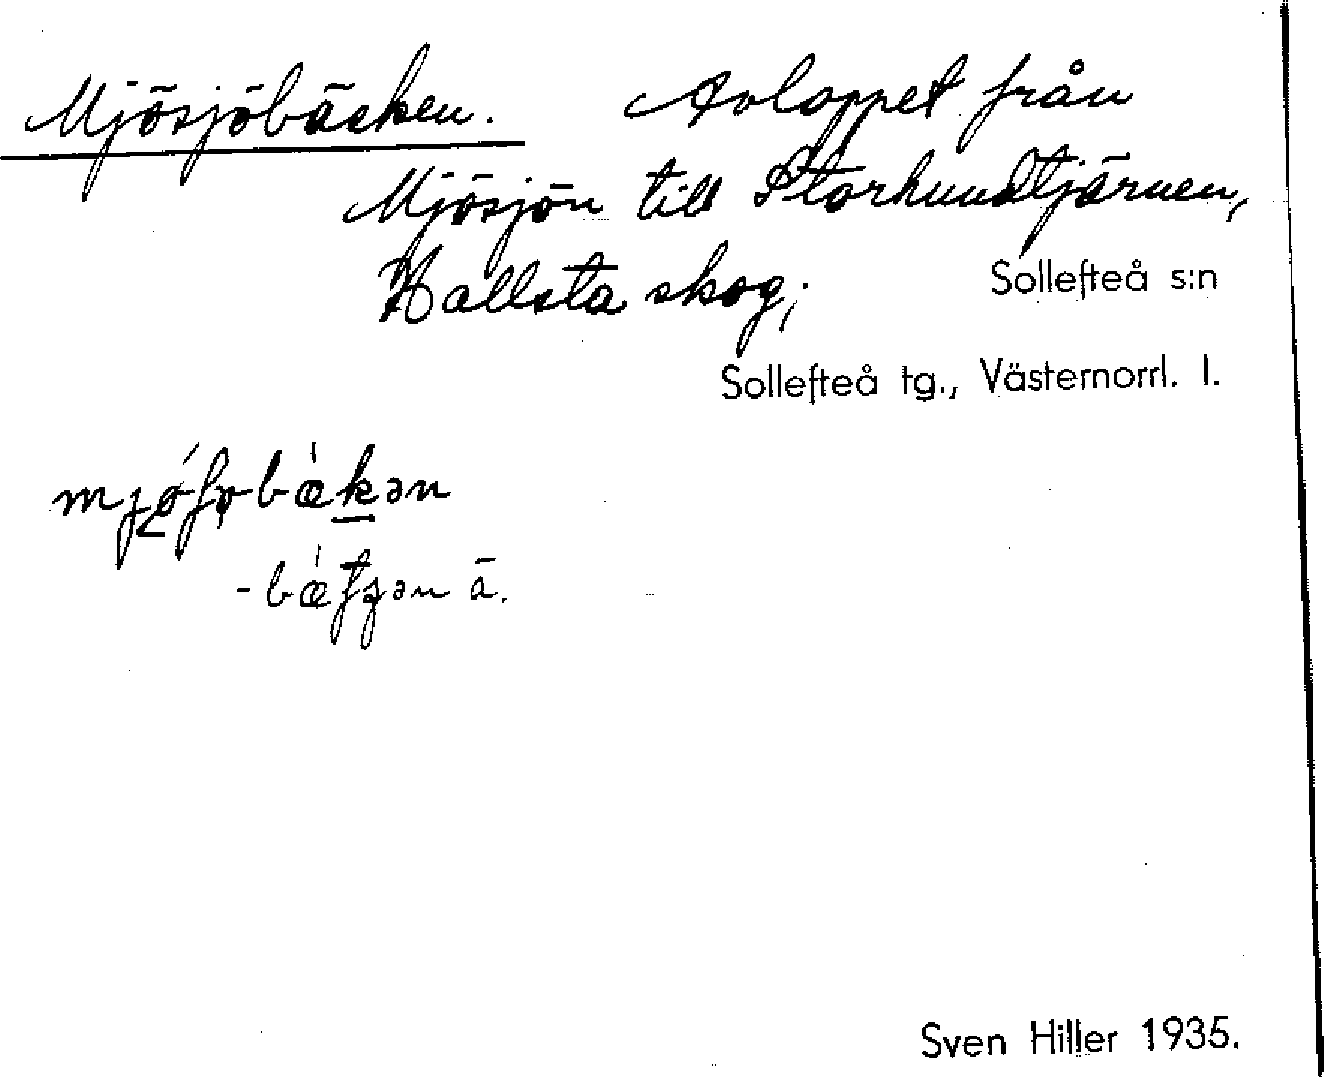 Mjösjöbäcken. Avloppet från
Mjösjön till Storhundtjärnen,
Hallsta skog;
Sollefteå s:n
Sollefteå tg., Västernorrl. l.
ä.
Sven Hiller 1935.